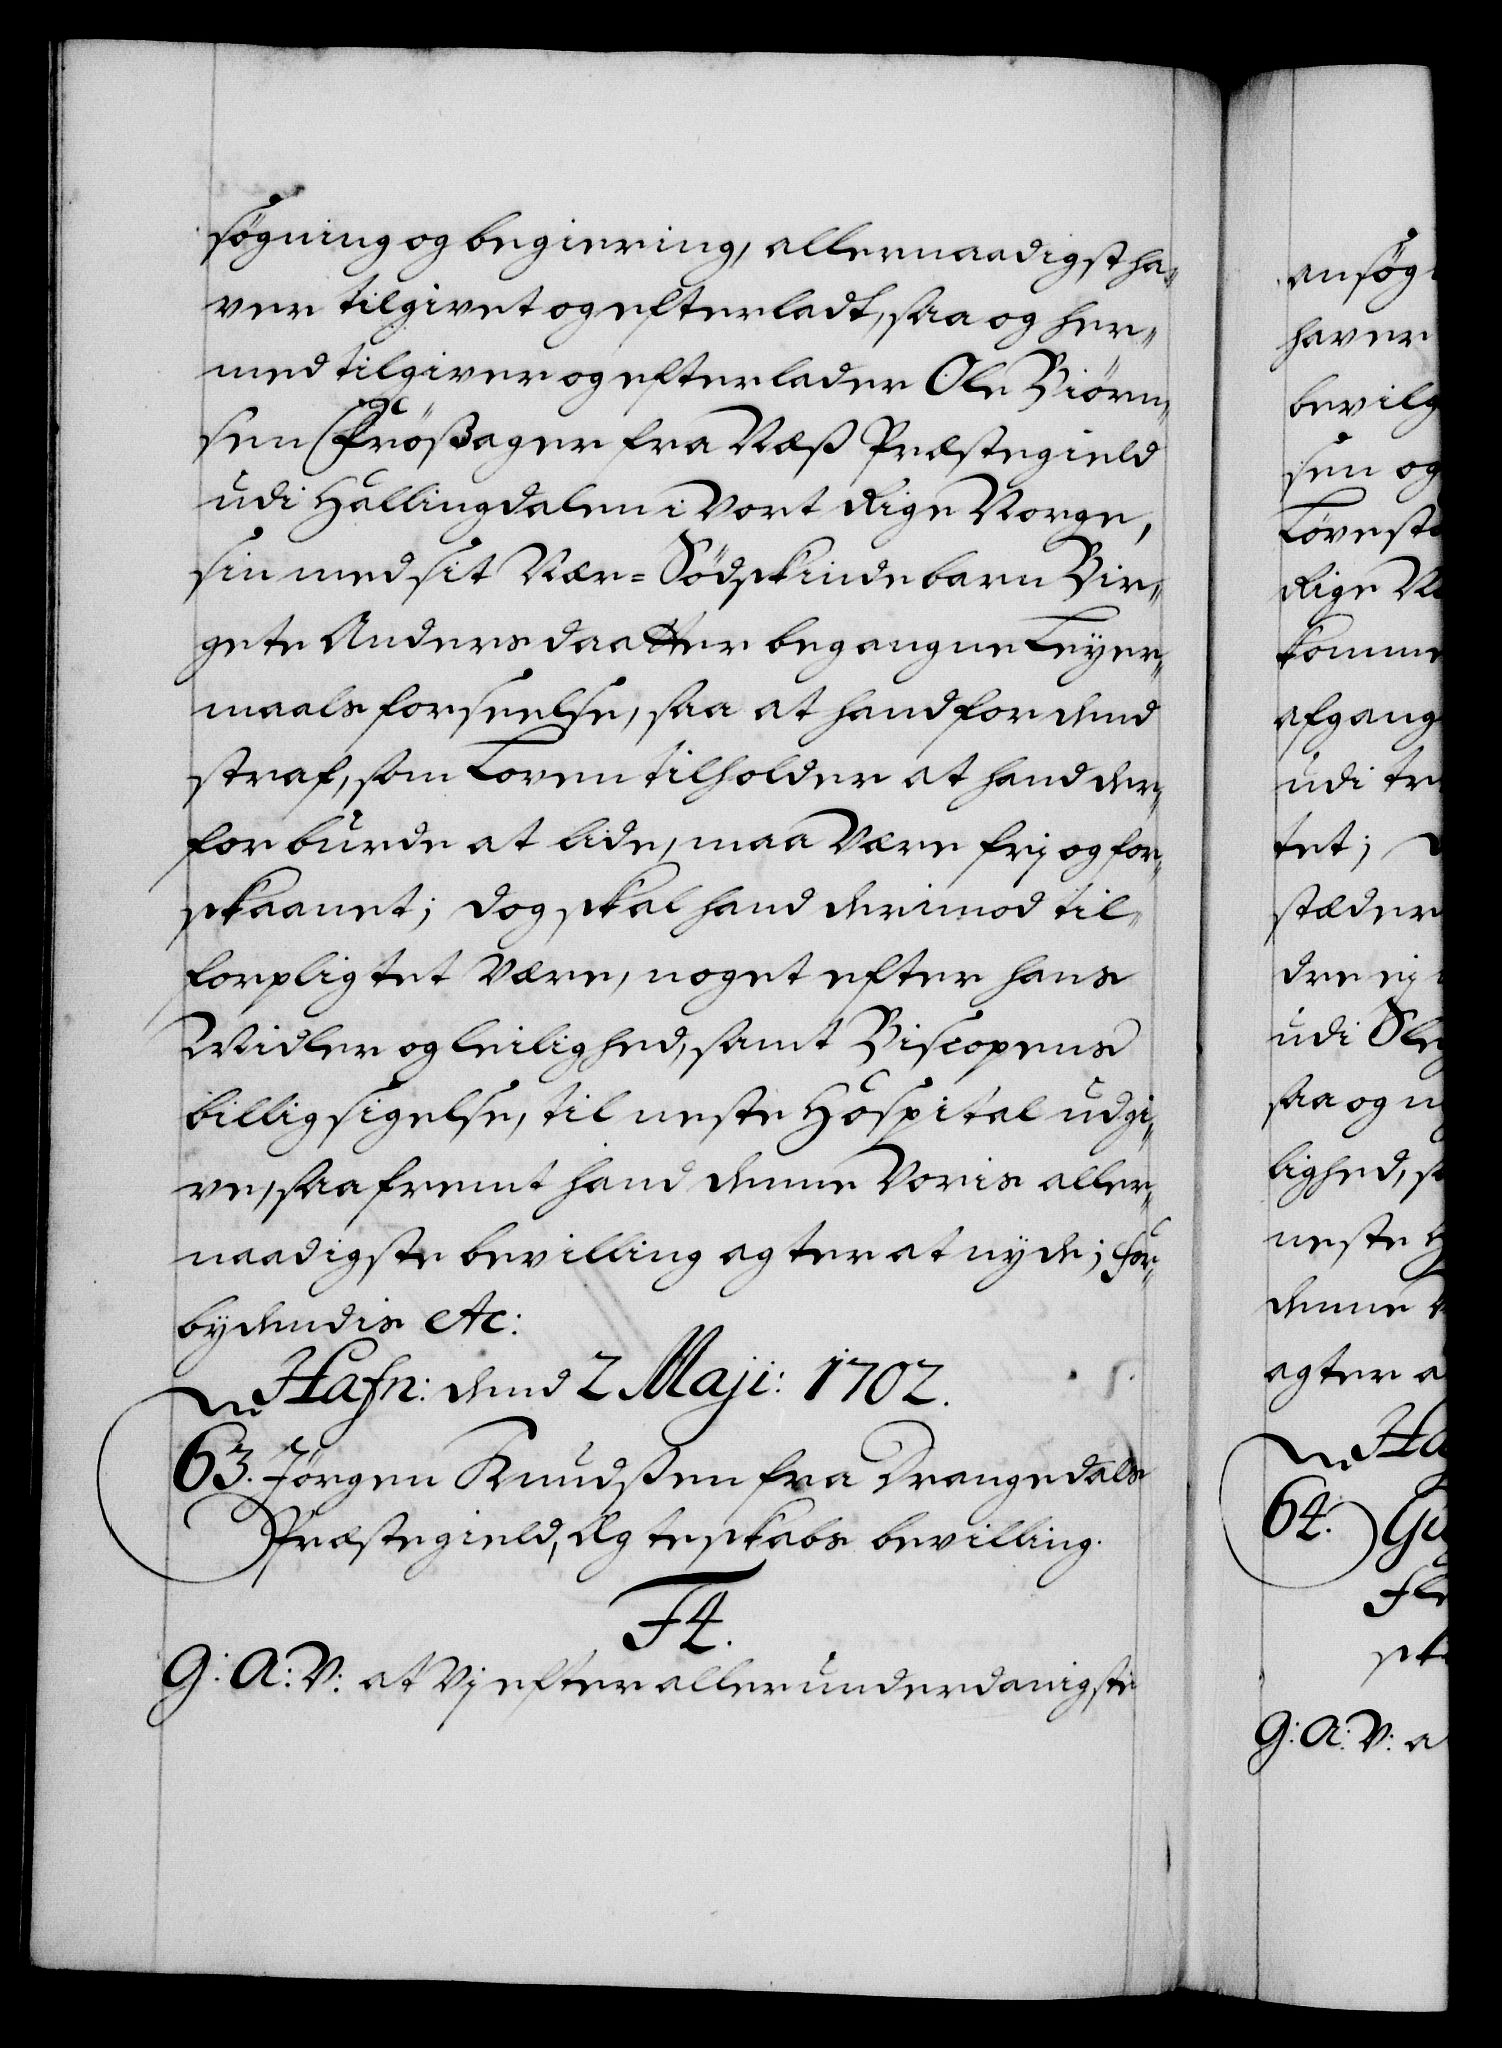 søgning og begiering, allernaadigst ha-
ver tilgivet og efterladt, saa og her-
med tilgiver og efterlader Ole Biørn-
sen Frößager fra Næß Præstegield
udi Hallingdalen i Vort Rige Norge,
sin med sit Nær-Sødskindebarn Bir-
gete Andersdaatter begangne Leyer-
maals forseelse, saa at hand for dend
straf, som Loven tilholder at hand der-
for burde at lide, maa Være frj og for-
skaanet; dog skal hand derimod til-
forpligtet Være, noget efter hans
Midler og leilighed, samt Biscopens
billigsigelse, til neste Hospital udgi-
ve, saafremt hand denne Voris aller-
naadigste bevilling agter at nyde; For-
bydendis etc:
Hafn: dend 2 Maji: 1702.
63. Jørgen Knudßen fra Drangedals
Præstegield, Ægteskabs bevilling.
F4.
G: A: V: at Vj efter allerunderdanigste
ansøg
haver
bevilg
sen og
Løvest
Rige N
komme
afgang
udi tr
tet;
stæder
dre ej
udi Sle
saa og n
lighed, s
neste H
denne V
agter a
Ha
64. Gu
Fle
sk
G: A: V: a